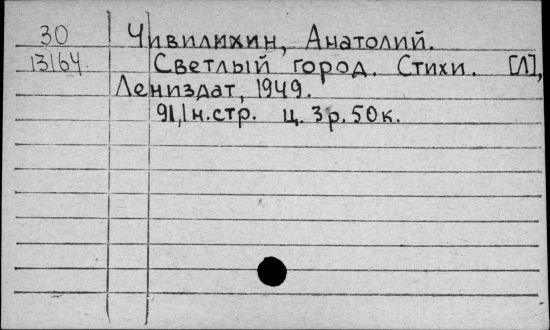 30 Чивилихин, Анатолий.
13164 Светлый город. Стихи. [Л],
Лениздат, 1949.
91,1 н.стр. ц. 3р. 50к.